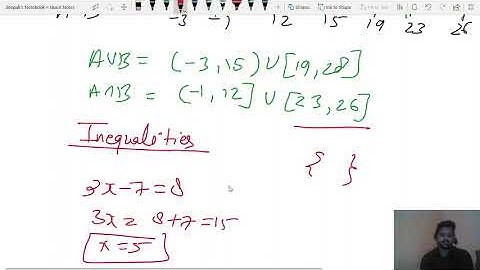 Deepak's Notebook » Quick Notes
-3 -1 12 15 19 23 26
AUB = (-3,15) U [19,28]
A∩B = (-1,12] U [23,26]
Inequalities
{ }
3x-7=8
3x= 8+7=15
x=5